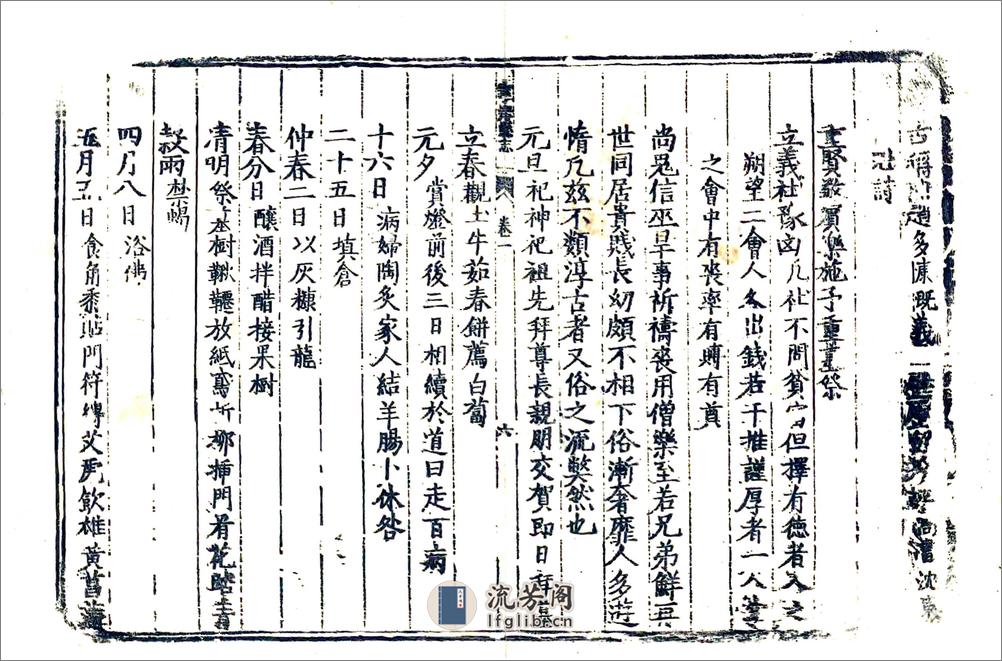 古稱燕趙多慷慨義
詩
重賢敬賓樂施予重葬祭
立義社豚凶凡社不問貧富但擇有德者入之
朔望二會人各出錢若干推謹厚者一人掌
之會中有喪率有賻有奠
尚鬼信巫旱事祈禱喪用僧樂至若兄弟鮮再
世同居貴賤長幼頗不相下俗漸奢靡人多遊
惰凡兹不類淳古者又俗之流獘然也
卷一
六
元旦祀神祀祖先拜尊長親朋交賀即日拜墓
立春觀土牛茹春餅薦白蔔
元夕賞燈前後三日相續於道曰走百病
十六日病婦陶灸家人結羊腸卜休咎
二十五日填倉
仲春二日以灰糠引龍
春分日釀酒拌醋接果樹
清明祭墓樹鞦韆放紙鳶折柳插門看花踏青
穀雨禁蝎
四月八日浴佛
五月五日食角黍貼門符縛艾虎飲雄黄菖蒲
流芳阁
lfglib.cn